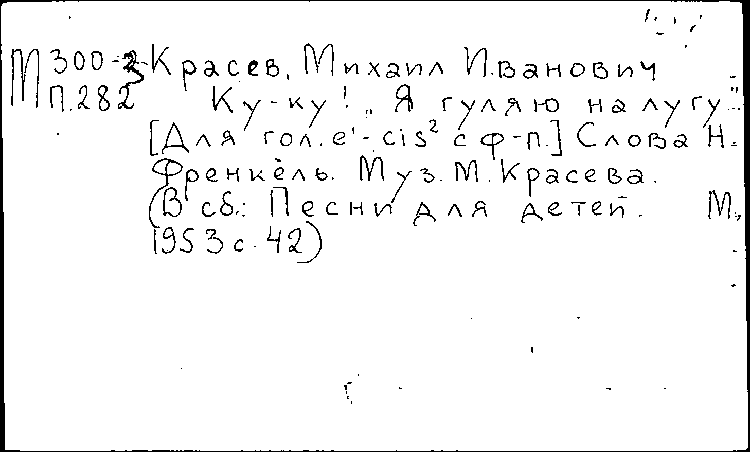 М 300-3 Красев, Михаил Иванович
П.282 Ку-ку! „Я гуляю на лугу“
[Для гол. e'-cis² с ф-п.] Слова Н.
Френкель. Муз. М. Красева.
(В сб.: Песни для детей. М.,
1953 с. 42)